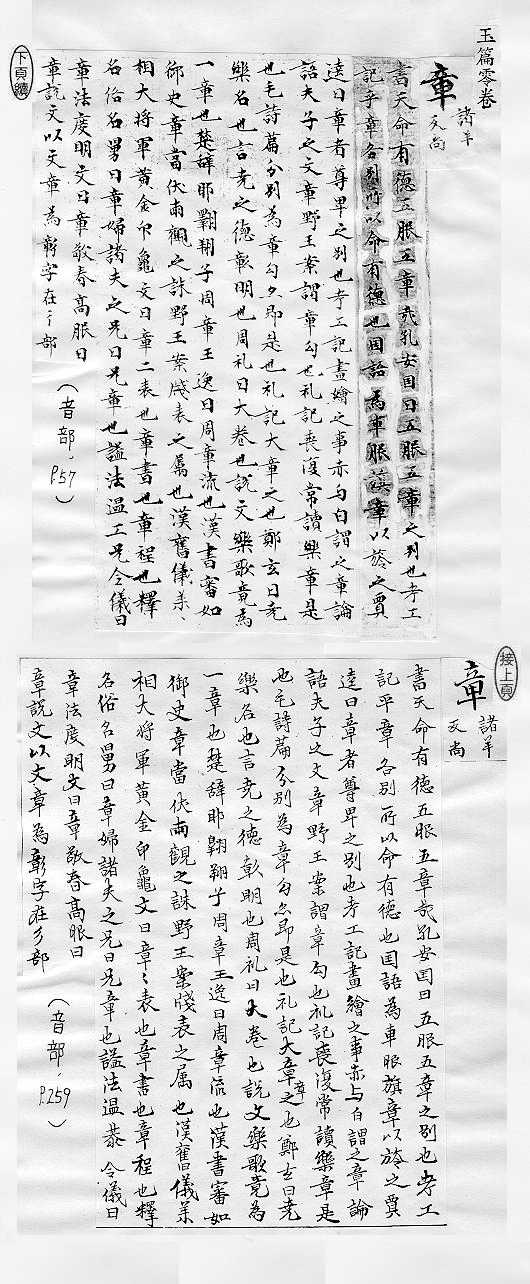 玉篇零卷
章 諸羊
反尚
書天命有德五服五章哉孔安国曰五服五章之別也考工
記乎章各別所以命有德也国語為車服旗章以旌之賈
逵曰章者尊卑之別也考工記畫繪之事赤与白謂之章論
語夫子之文章野王案謂章勾也礼記喪復常讀樂章是
也毛詩篇分別為章勾久即是也礼記大章之也鄭玄曰尭
樂名也言尭之德彰明也周礼曰大卷也說文樂歌竟為
一章也楚辞耶翺翔子周章王逸曰周章流也漢書審如
御史章當伏兩觀之誅野王案牋表之属也漢舊儀羕、
相大将軍黄金印龜文曰章二表也章書也章程也釋
名俗名舅曰章婦諸夫之兄曰兄章也謚法温工兄令儀曰
章法度明文曰章敬春高服曰
章說文以文章為彰字在彡部
(音部,P.57)
下頁續
接上頁
章 諸羊
反尚
書天命有德五服五章哉孔安国曰五服五章之別也考工
記平章各別所以命有德也国語為車服旗章以旌之賈
逵曰章者尊卑之別也考工記畫繪之事赤与白謂之章論
語夫子之文章野王案謂章勾也礼記喪復常讀樂章是
也毛詩篇分別為章勾尒即是也礼記大章章之也鄭玄曰尭
樂名也言尭之德彰明也周礼曰大卷也說文樂歌竟為
一章也楚辞耶翺翔子周章王逸曰周章流也漢書審如
御史章當伏兩觀之誅野王案牋表之属也漢舊儀羕
相大将軍黄金印龜文曰章〻表也章書也章程也釋
名俗名舅曰章婦諸夫之兄曰兄章也謚法温恭令儀曰
章法度明文曰章敬春高眼曰
章說文以文章為彰字在彡部
(音部,P.259)